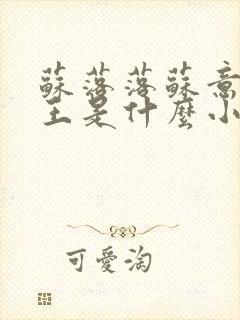 蘇落落蘇意
主是什麼小
可愛淘